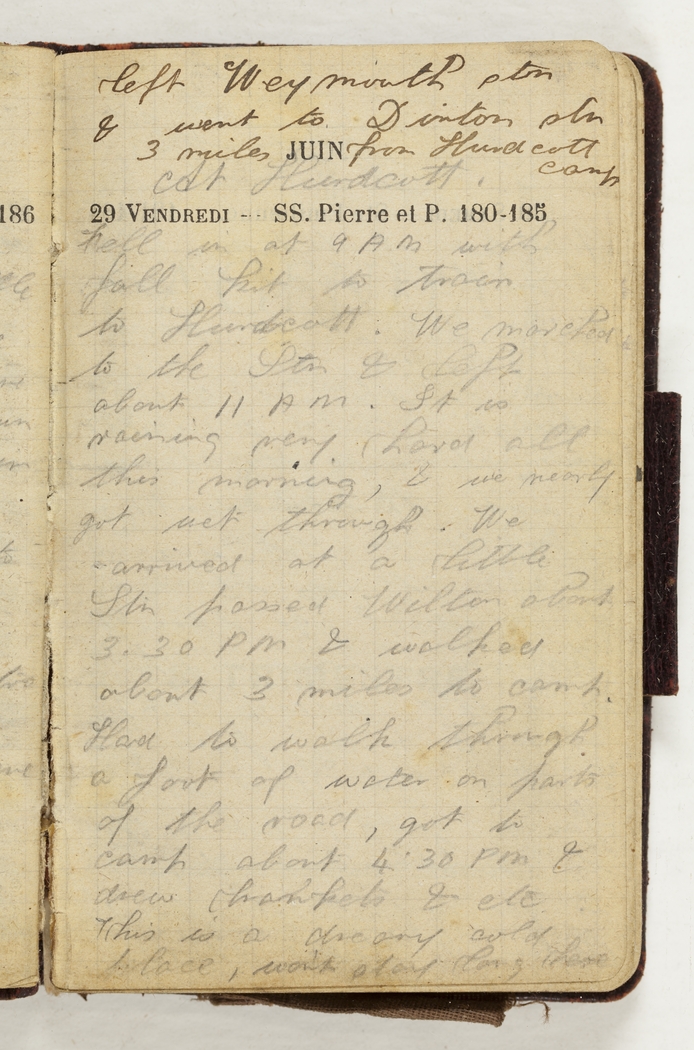 left Weymouth stn
& went to Dinton stn
3 miles JUIN from Hurdcott
camp
at Hurdcott.
186
29 VENDREDI -- SS. Pierre et P. 180-185
Fell in at 9 AM with
full kit to train
to Hurdcott. We marched
to the Stn & left
about 11 AM. It is
raining very hard all
this morning, & we nearly
got wet through. We
arrived at a little
Stn passed Wilton about
3.30 PM & walked
about 3 miles to camp.
Had to walk through
a foot of water on parts
of the road, got to
camp about 4.30 PM &
drew blankets & etc
This is a dreary cold
place, wont stay long here